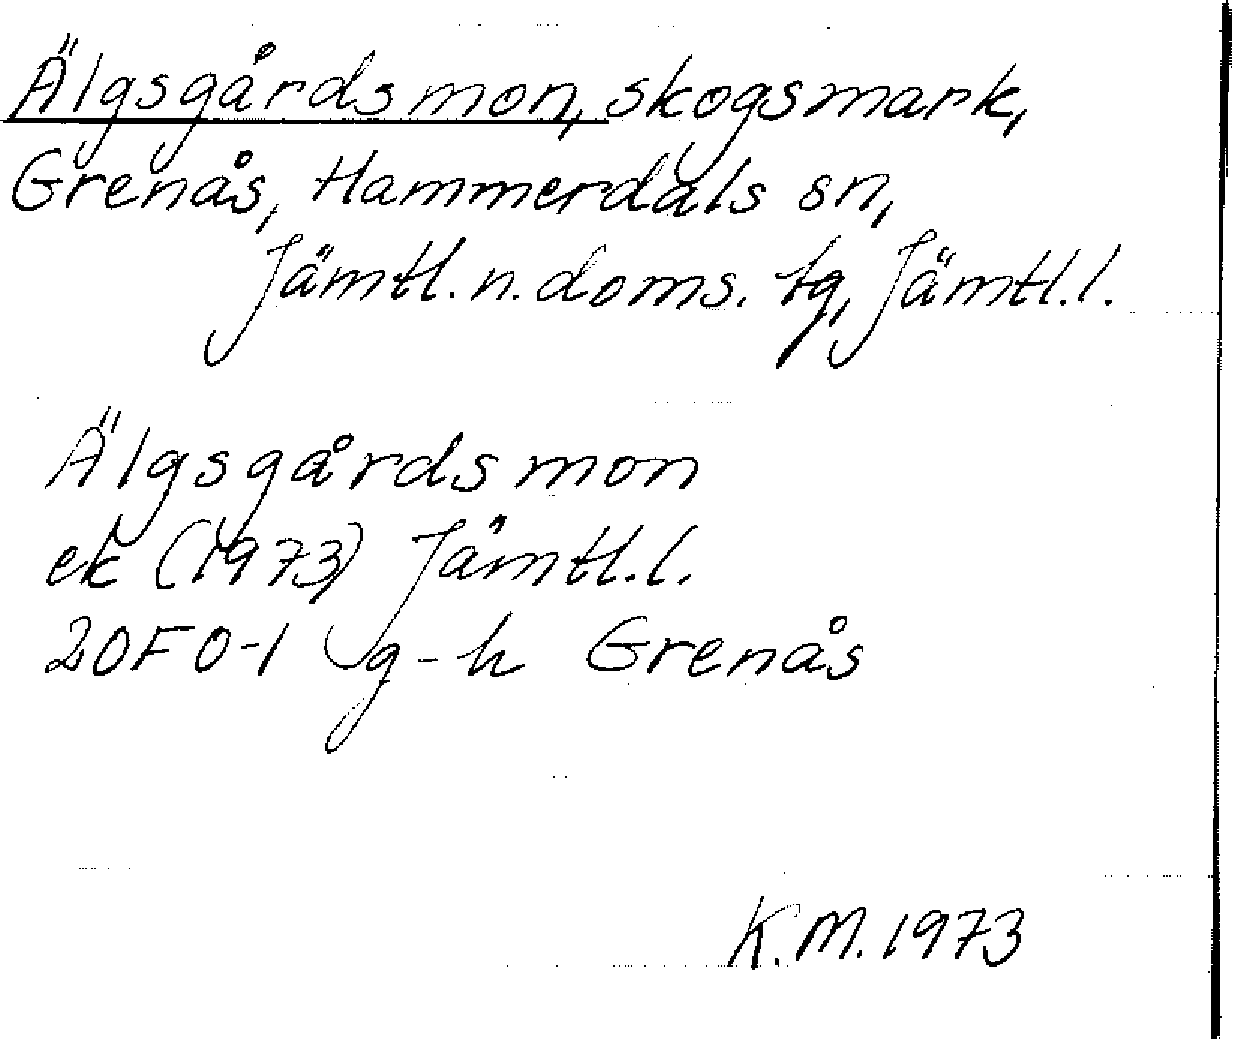 Älgsgårdsmon, skogsmark,
Grenås, Hammerdals sn,
Jämtl. n. doms. tg, Jämtl. l.
Älgsgårdsmon
ek (1973) Jämtl. l.
20F 0-1 g-h Grenås
K.M. 1973